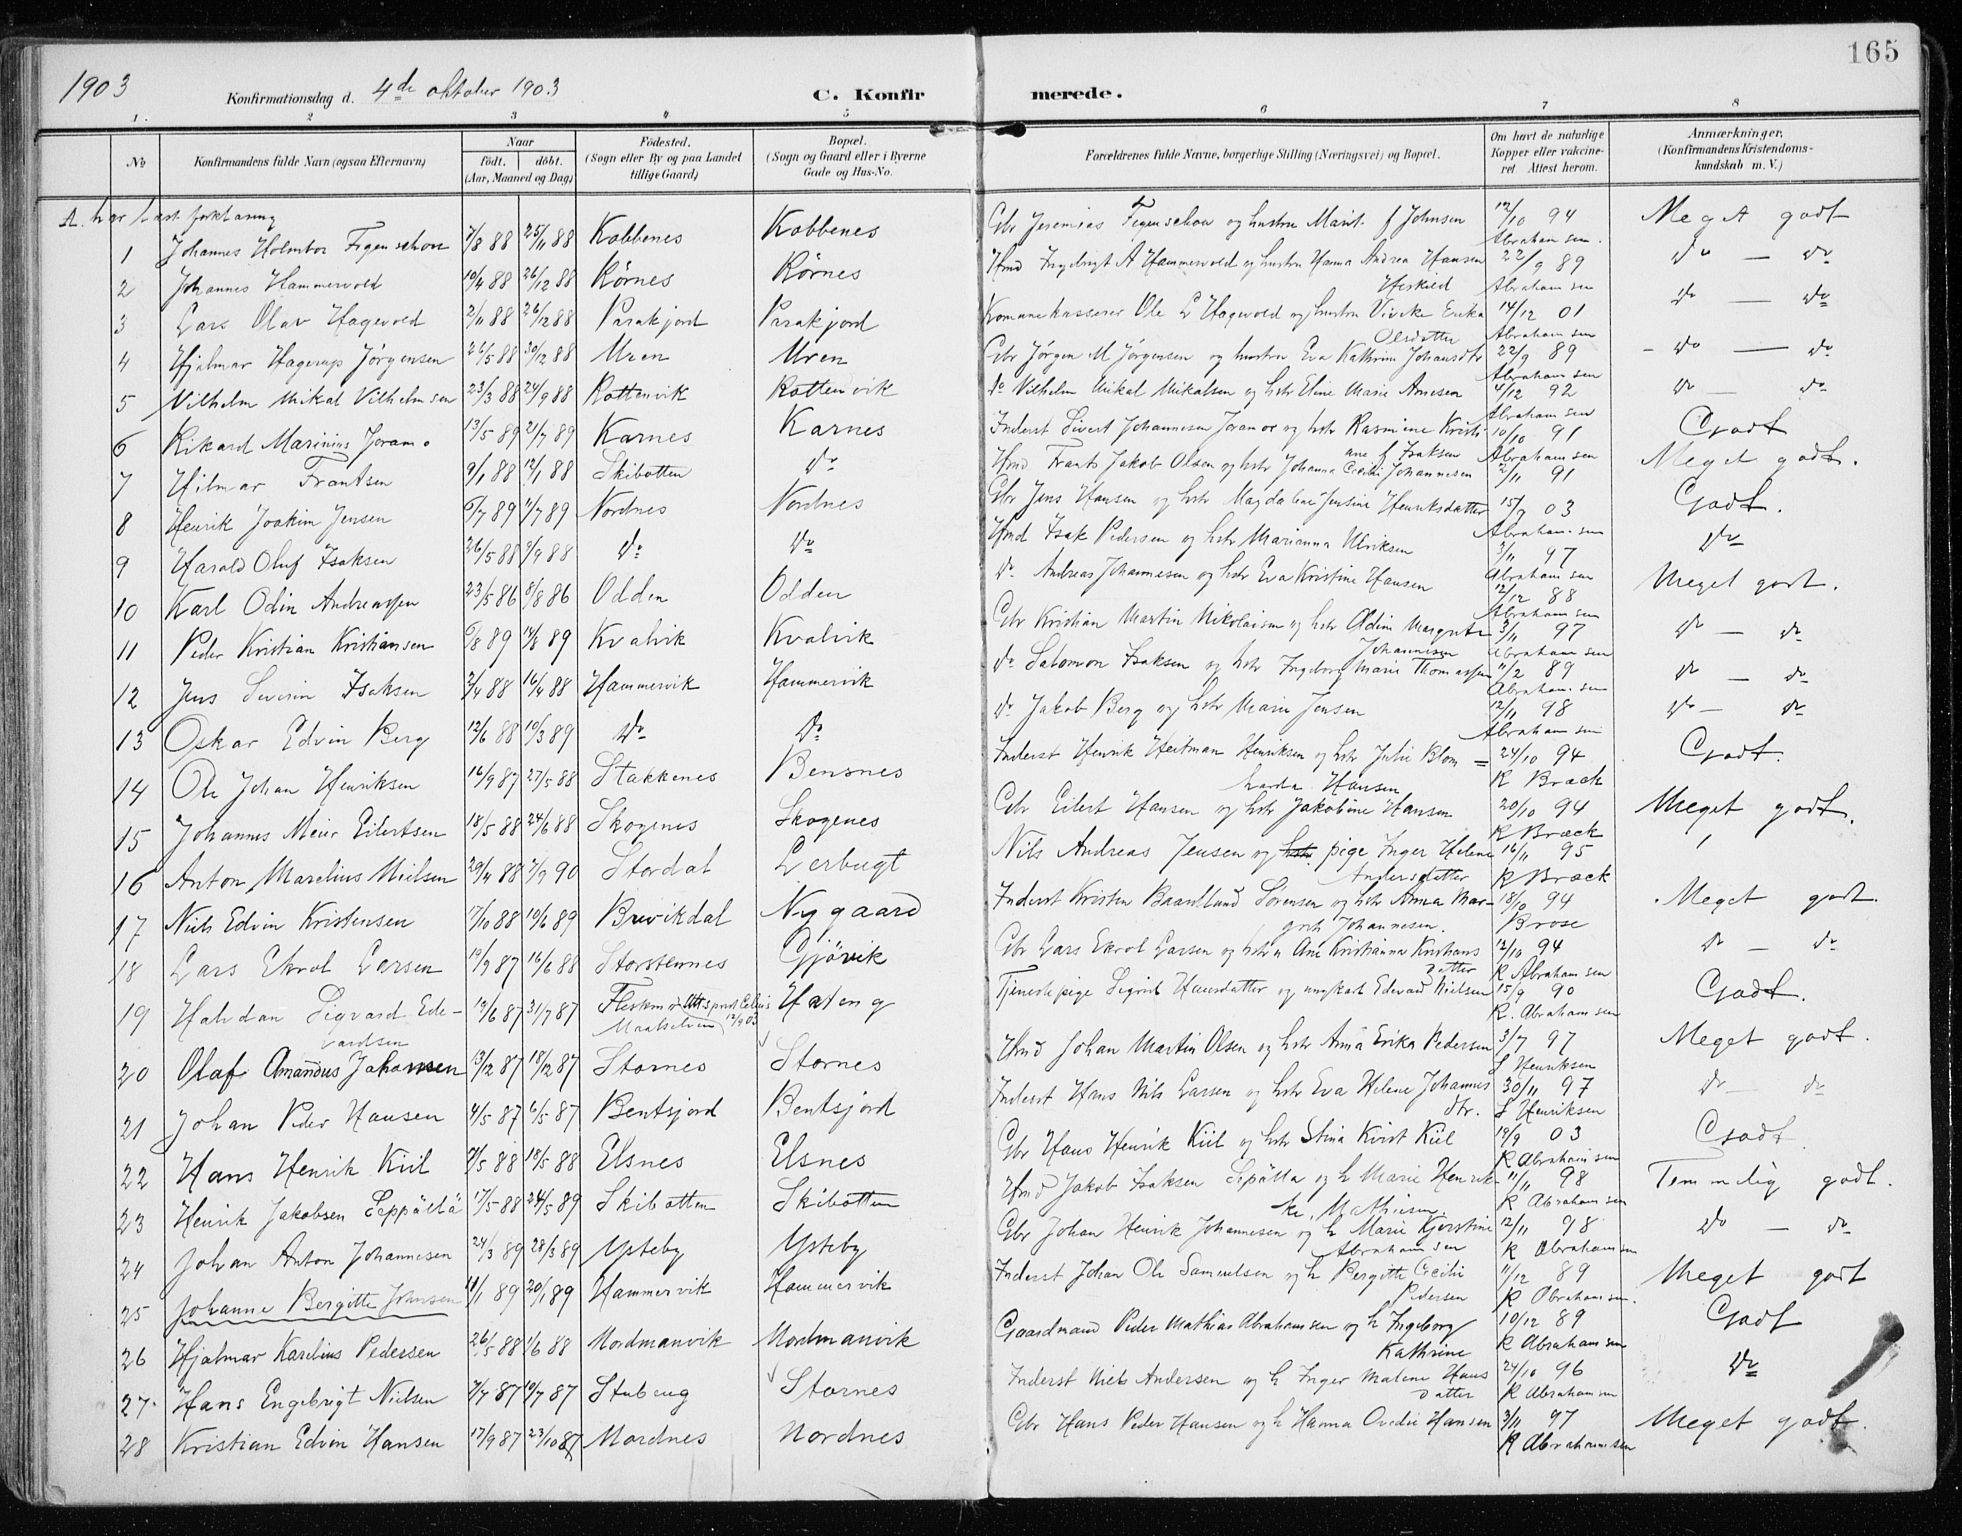 165
1903 Konfirmationsdag d. 4de oktober 1903 C. Konfir merede.
1. 2 3 4 5 6 7 8
No Konfirmandens fulde Navn (ogsaa Efternavn) Naar födt. döbt. (Aar, Maaned og Dag) Födested. (Sogn eller By og paa Landet tillige Gaard) Bopæl. (Sogn og Gaard eller i Byerne Gade og Hus-No. Forældrenes fulde Navne, borgerlige Stilling (Næringsvei) og Bopæl. Om havt de naturlige Kopper eller vakcineret Attest herom. Anmærkninger, (Konfirmandens Kristendomskundskab m. V.)
A. har læst forklaring
1 Johannes Holmbor Figenschou 7/8 88 25/11 88 Kobbenes Kobbenes Gbr Jeremias Figenschou og hustru Marit f Johnsen 12/10 94 Abrahamsen. Meget godt
2 Johannes Hammervold 10/4 88 26/12 88 Rörnes Rörnes Hmd Ingebrigt A Hammervold og hustru Hanna Andrea Hansen 22/9 89 Abrahamsen do — do
3 Lars Olav Hagevold 2/11 88 26/12 88 Parakjord Parakjord Komunekasserer Ole L Hagevold og hustru Vivike Erika Olsdatter 14/12 01 Abrahamsen do — do
4 Hjalmar Hagerup Jörgensen 26/5 88 30/12 88 Uren Uren Gbr Jörgen M Jörgensen og hustru Eva Kathrine Johansdtr 22/9 89 Abrahamsen - do — do
5 Vilhelm Mikal Vilhelmsen 23/3 88 24/9 88 Rottenvik Rottenvik do Vilhelm Mikal Mikalsen og hstr Eline Marie Arnesen 4/12 92 Abrahamsen do do
6 Rikard Marinius Joramo 13/5 89 21/7 89 Karnes Karnes Inderst Sivert Johannesen Joramo og hstr Rasmine Kristiane f Isaksen 10/10 91 Abrahamsen Godt
7 Hilmar Frantsen 9/1 88 12/1 88 Skibotten do Hmd Frants Jakob Olsen og hstr Johanna Cecilie Johannesen 2/11 91 Meget godt.
8 Henrik Joakim Jensen 6/7 89 11/7 89 Nordnes Nordnes Gbr Jens Hansen og hstr Magdalene Jensine Henriksdatter 15/9 03 Abrahamsen Godt.
9 Harald Oluf Isaksen 26/5 88 9/9 88 do do Hmd Isak Pedersen og hstr Marianna Ulriksen 3/11 97 Abrahamsen do
10 Karl Odin Andreassen 23/5 86 8/8 86 Odden Odden do Andreas Johannesen og hstr Eva Kristine Hansen 12/12 88 Abrahamsen Meget godt.
11 Peder Kristian Kristiansen 6/8 89 14/8 89 Kvalvik Kvalvik Gbr Kristian Martin Nikolaisen og hstr Oldine Margrete Johannesen 3/11 97 Abrahamsen do — do
12 Jens Severin Isaksen 3/4 88 16/4 88 Hammervik Hammervik do Salomon Isaksen og hstr Ingeborg Marie Thomassen 11/2 89 Abrahamsen do — do
13 Oskar Edvin Berg 12/6 88 10/3 89 do do do Jakob Berg og hstr Marie Jensen 12/11 98 Abrahamsen do — do
14 Ole Johan Henriksen 16/9 87 27/5 88 Stakkenes Bensnes Inderst Henrik Heitman Henriksen og hstr Julie Blom= Hansen 24/10 94 R Brack Godt.
15 Johannes Meier Eilertsen 18/5 88 24/6 88 Skogenes Skogenes Gbr Eilert Hansen og hstr Jakobine Hansen 20/10 94 R Bræck Meget godt.
16 Anton Marelius Nielsen 20/4 88 7/9 90 Stordal Lerbugt Nils Andreas Jensen og hstr. pige Inger Helene Andersdatter 16/11 95 R Bræck
17 Niels Edvin Kristensen 17/10 88 10/6 89 Breivikdal Nygaard Inderst Kristen Baardlund Sörensen og hstr Anna Margrete Johannesen. 18/10 94 Brose Meget godt.
18 Lars Ekrol Larsen 19/9 87 16/6 88 Storstennes Gjövik Gbr Lars Ekrol Larsen og hstr Ane Kristianna Kristiansdatter 12/10 94 R Abrahamsen do — do
19 Halvdan Sigvard Edevardsen 12/6 87 31/7 87 Maalselven 12/9 03 Hateng Tjenestepige Sigrid Hansdatter og ungkarl Edevard Nielsen 15/9 90 R. Abrahamsen Godt.
20 Olaf Amandus Johansen 13/12 87 18/12 87 Stornes Stornes Hmd Johan Martin Olsen og hstr Anna Erika Pedersen 3/7 97 S Henriksen Meget godt.
21 Johan Peder Hansen 4/5 87 6/5 87 Bentsjord Bentsjord Inderst Hans Nils Larsen og hstr Eva Helene Johannesdtr. 30/11 97 S Henriksen do — do
22 Hans Henrik Kiil 9/5 88 18/5 88 Elsnes Elsnes Gbr Hans Henrik Kiil og hstr Stina Kvist Kiil 19/9 03 R Abrahamsen Godt
23 Henrik Jakobsen Seppälä 17/5 88 24/5 89 Skibotten Skibotten Hmd Jakob Isaksen Sepälla og h Marie Henrikke Mathisen. 11/11 98 R Abrahamsen Temmelig godt.
24 Johan Anton Johannesen 24/3 89 28/3 89 Ysteby Ysteby Gbr Johan Henrik Johannesen og h Marie Kjerstine Abrahamsen 12/11 98 R Abrahamsen do — do
25 Johanne Bergitte Johnsen 11/1 89 20/1 89 Hammervik Hammervik Inderst Johan Ole Samuelsen og h Bergitte Cecilie Pedersen 11/12 89 R Abrahamsen. Meget godt
26 Hjalmar Karelius Pedersen 26/5 88 1/6 88 Nordmanvik Nordmanvik Gaardmand Peder Mathias Abrahamsen og h Ingeborg Kathrine 10/12 89 R Abrahamsen Godt
27. Hans Engebrigt Nielsen 7/7 87 10/7 87 Stubeng Stornes Inderst Niels Andersen og h Inger Malene Hansdatter 24/10 96 R Abrahamsen do
28 Kristian Edvin Hansen 17/9 87 23/10 87 Nordnes Nordnes Gbr Hans Peder Hansen og h Hanna Ovedie Hansen 3/11 97 R Abrahamsen Meget godt.